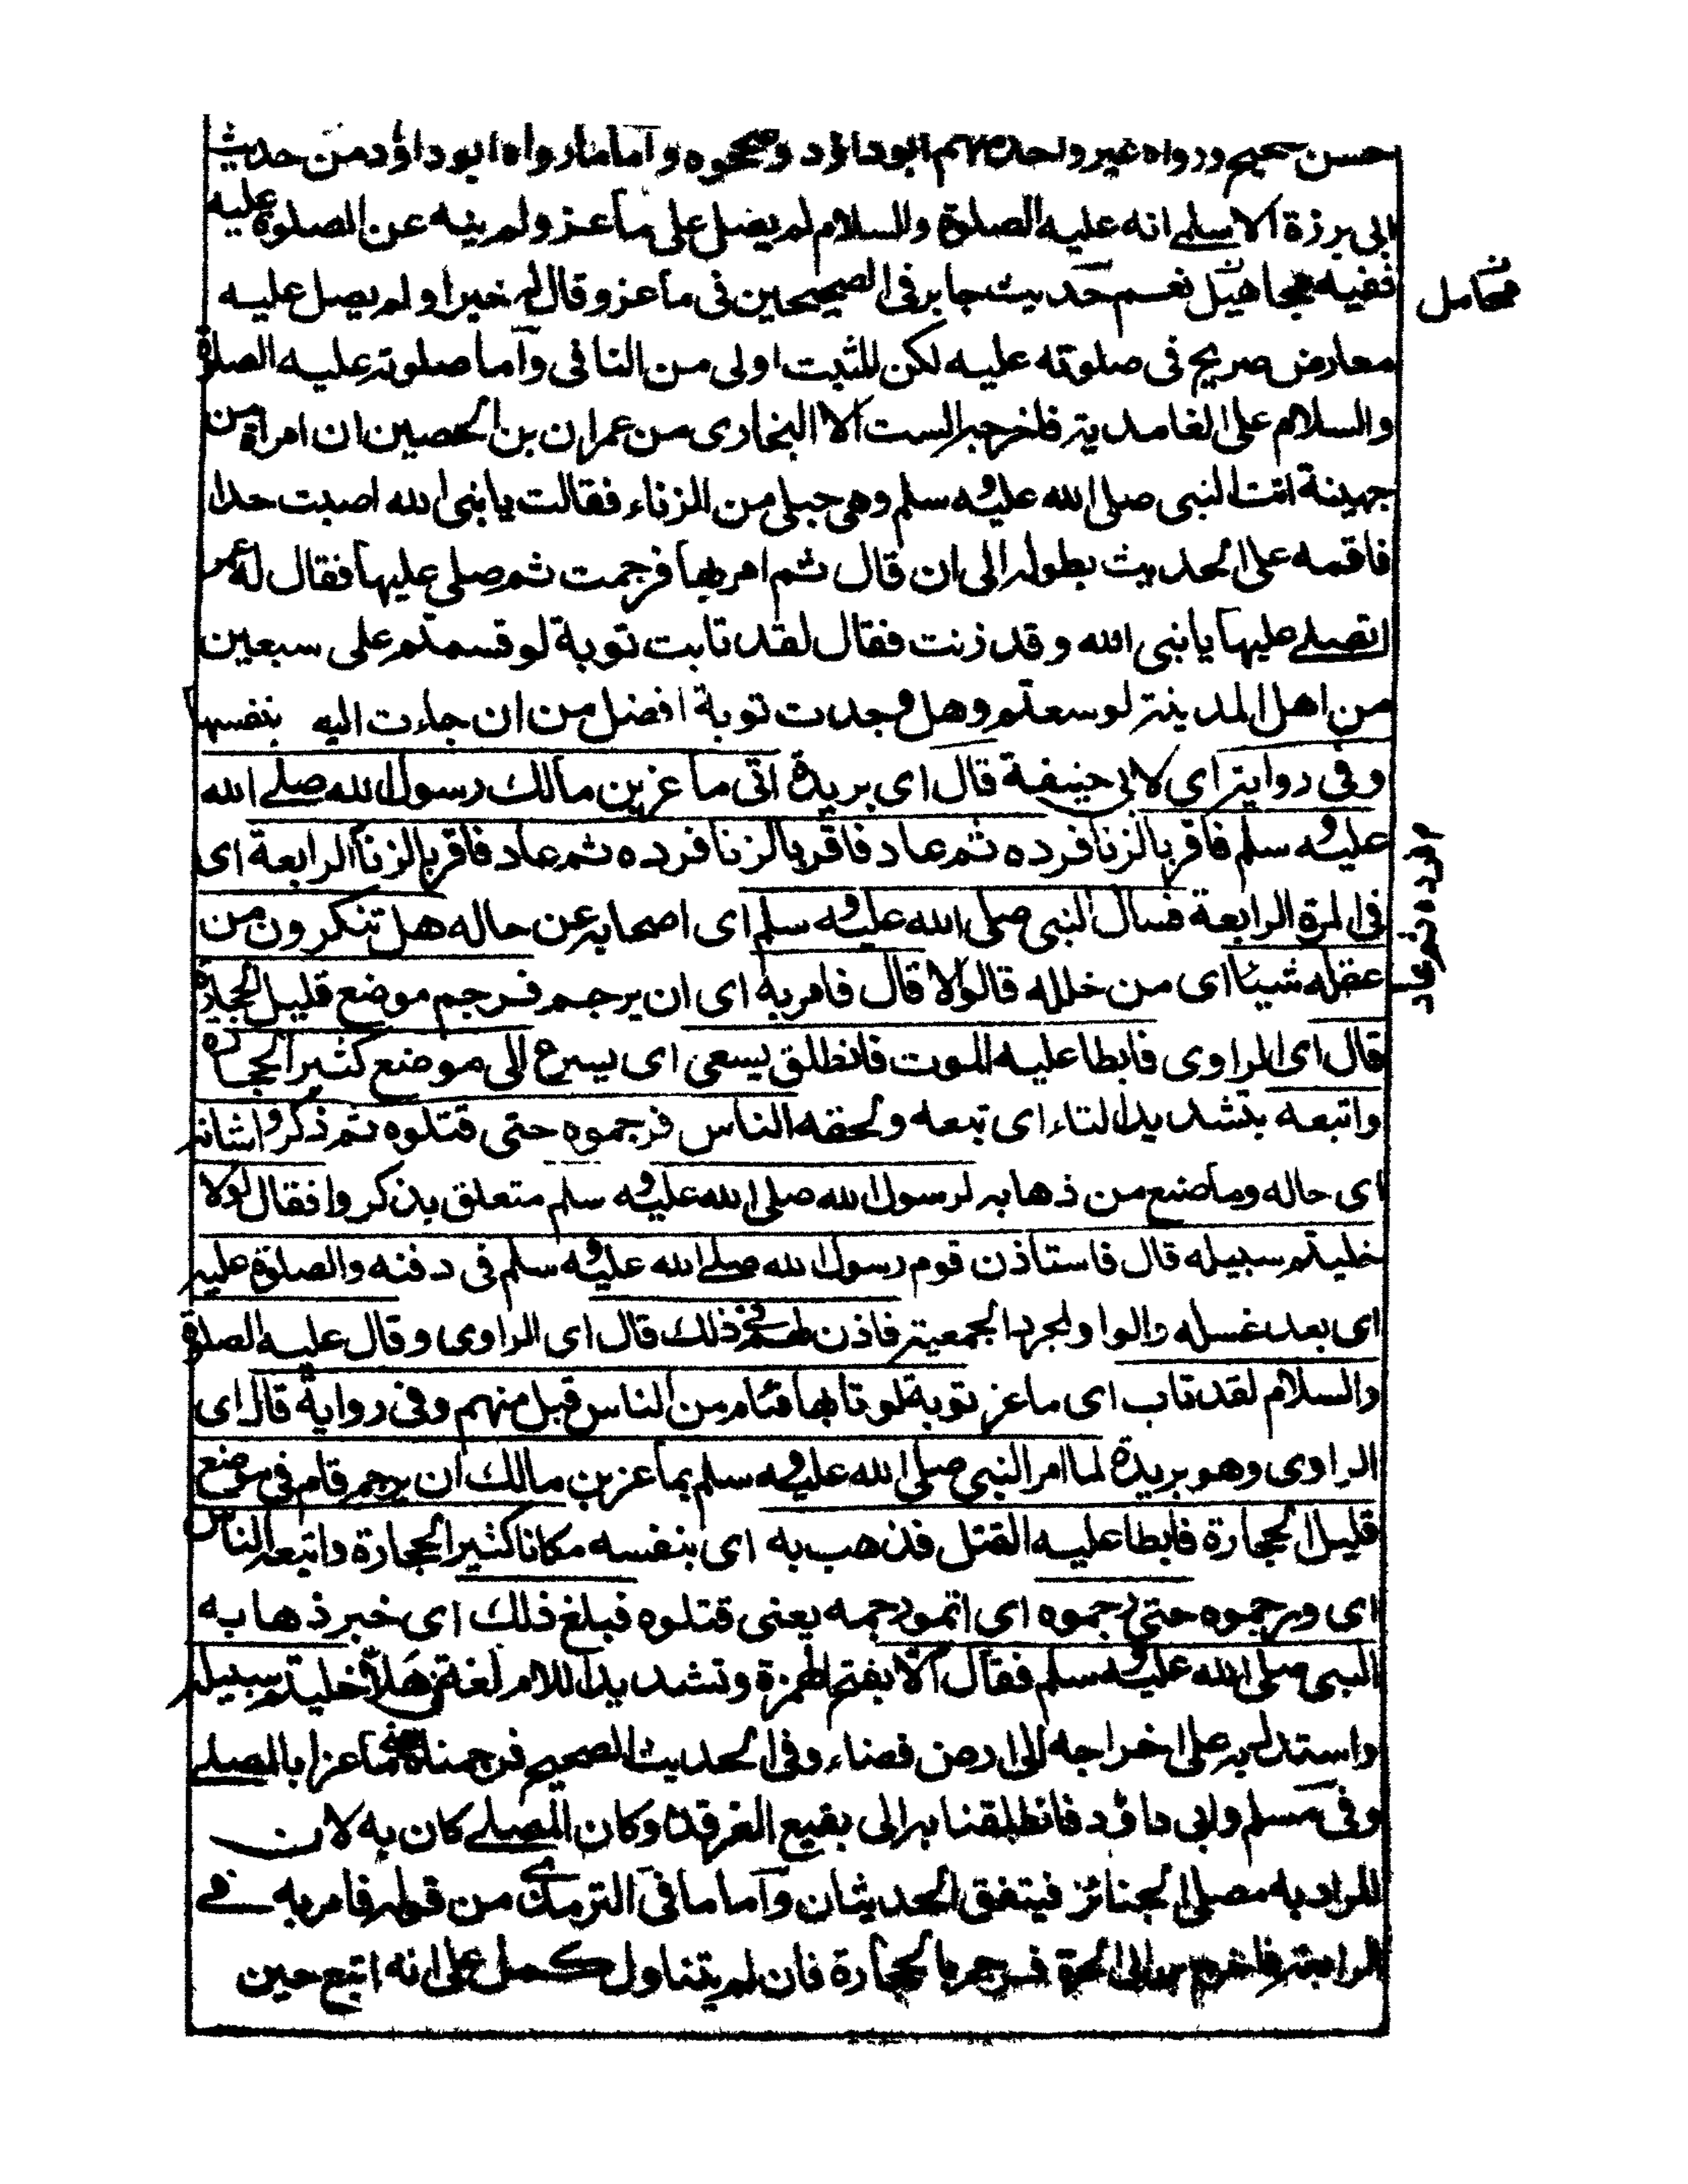 حسن صحيح ورواه غير واحد منهم ابوداؤد وصححوه واما ما رواه ابوداؤد من حديث
ابى برزة الاسلمے انه عليه الصلوة والسلام لم يصل على ماعز ولم ينه عن الصلوة عليه
ففيه مجاهيل نعم حديث جابر فى الصحيحين فى ماعز وقال له خيرا ولم يصل عليه
معارض صريح فى صلوته عليه لكن المثبت اولى من النافى واما صلوته عليه الصلوة
والسلام على الغامدية فاخرجه الست الا البخارى من عمران بن الحصين ان امراة من
جهينة اتت النبى صلى الله عليه وسلم وهى حبلى من الزناء فقالت يا نبى الله اصبت حدا
فاقمه على الحديث بطوله الى ان قال ثم امر بها فرجمت ثم صلى عليها فقال له عمر
اتصلے عليها يا نبى الله وقد زنت فقال لقد تابت توبة لو قسمتم على سبعين
من اهل المدينة لوسعتم وهل وجدت توبة افضل من ان جاءت اليه بنفسها
وفى رواية اى لابى حنيفة قال اى بريدة اتى ماعز بن مالك رسول الله صلے الله
عليه وسلم فاقر بالزنا فرده ثم عاد فاقر بالزنا فرده ثم عاد فاقر بالزنا الرابعة اى
فى المرة الرابعة فسال النبى صلى الله عليه وسلم اى اصحابه عن حاله هل تنكرون من
عقله شيئا اى من خلله قالوا لا قال فامر به اى ان يرجم فرجم موضع قليل الحجارة
قال اى الراوى فابطا عليه الموت فانطلق يسعى اى يسرع الى موضع كثير الحجارة
واتبعه بتشديد التاء اى تبعه ولحقه الناس فرجموه حتى قتلوه ثم ذكروا شانه
اى حاله وما صنع من ذهابه لرسول الله صلى الله عليه وسلم متعلق بذكروا فقال لولا
خليتم سبيله قال فاستاذن قوم رسول الله صلے الله عليه وسلم فى دفنه والصلوة عليه
اى بعد غسله والواو لمجرد الجمعية فاذن لهم فى ذلك قال اى الراوى وقال عليه الصلوة
والسلام لقد تاب اى ماعز توبة لو تابها فئام من الناس قبل منهم وفى رواية قال اى
الراوى وهو بريدة لما امر النبى صلى الله عليه وسلم بماعز بن مالك ان يرجم قام فى موضع
قليل الحجارة فابطا عليه القتل فذهب به اى بنفسه مكانا كثير الحجارة واتبعه الناس
اى ورجموه حتى رجموه اى اتموا رجمه يعنى قتلوه فبلغ ذلك اى خبر ذهابه
النبى صلى الله عليه وسلم فقال الا بفتح الهمزة وتشديد اللام لغة فى هلا خليتم سبيله
واستدل به على اخراجه الى ارض فضاء وفى الحديث الصحيح فرجمناه يعنى ماعزا بالمصلے
وفى مسلم وابى داؤد فانطلقنا به الى بقيع الغرقد وكان المصلے كان به لان
المراد به مصلى الجنائز فيتفق الحديثان واما ما فى الترمذى من قوله فامر به فے
الرابعة فاخرج به الى الحرة فرجم بالحجارة فان لم يتناول كمل على انه اتبع حين
متحامل
فرده ثم عاد